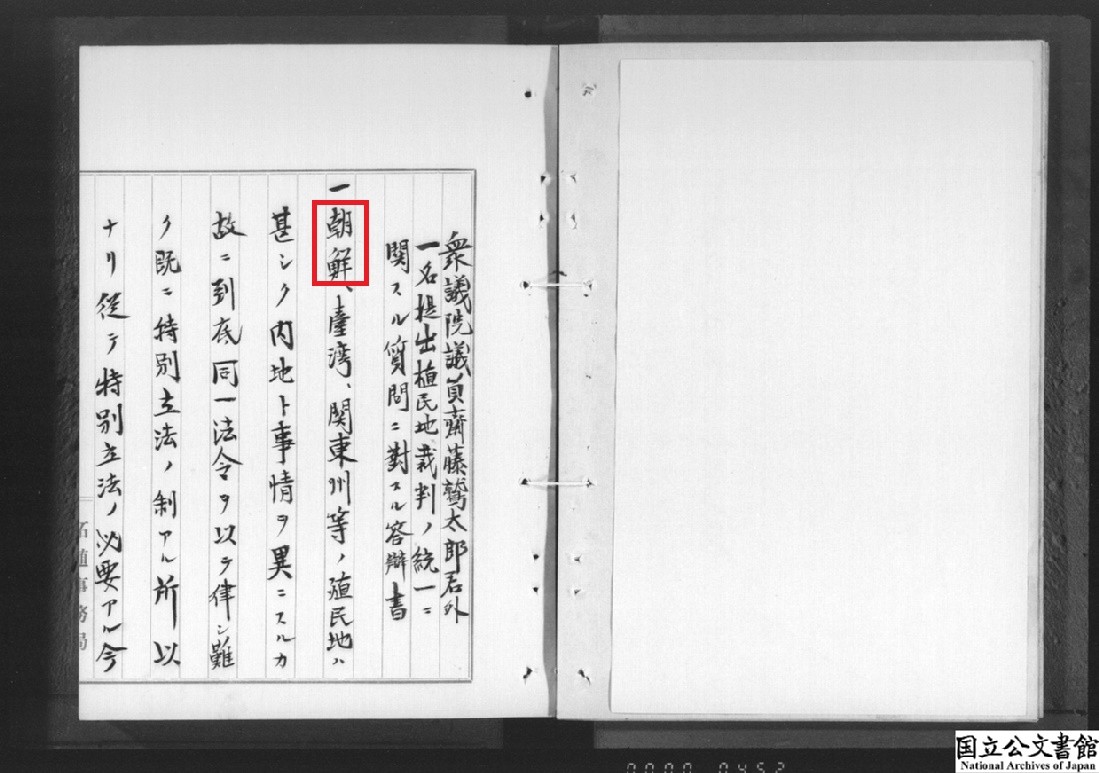 衆議院議員齋藤鷲太郎君外
一名提出植民地裁判ノ統一ニ
関スル質問ニ對スル答辯書
一朝鮮、臺湾、関東州等ノ殖民地ハ
甚シク内地ト事情ヲ異ニスルカ
故ニ到底同一法令ヲ以テ律シ難
ク既ニ特別立法ノ制アル所以
ナリ従テ特別立法ノ必要アル今
拓殖事務局
0000 0452
国立公文書館
National Archives of Japan